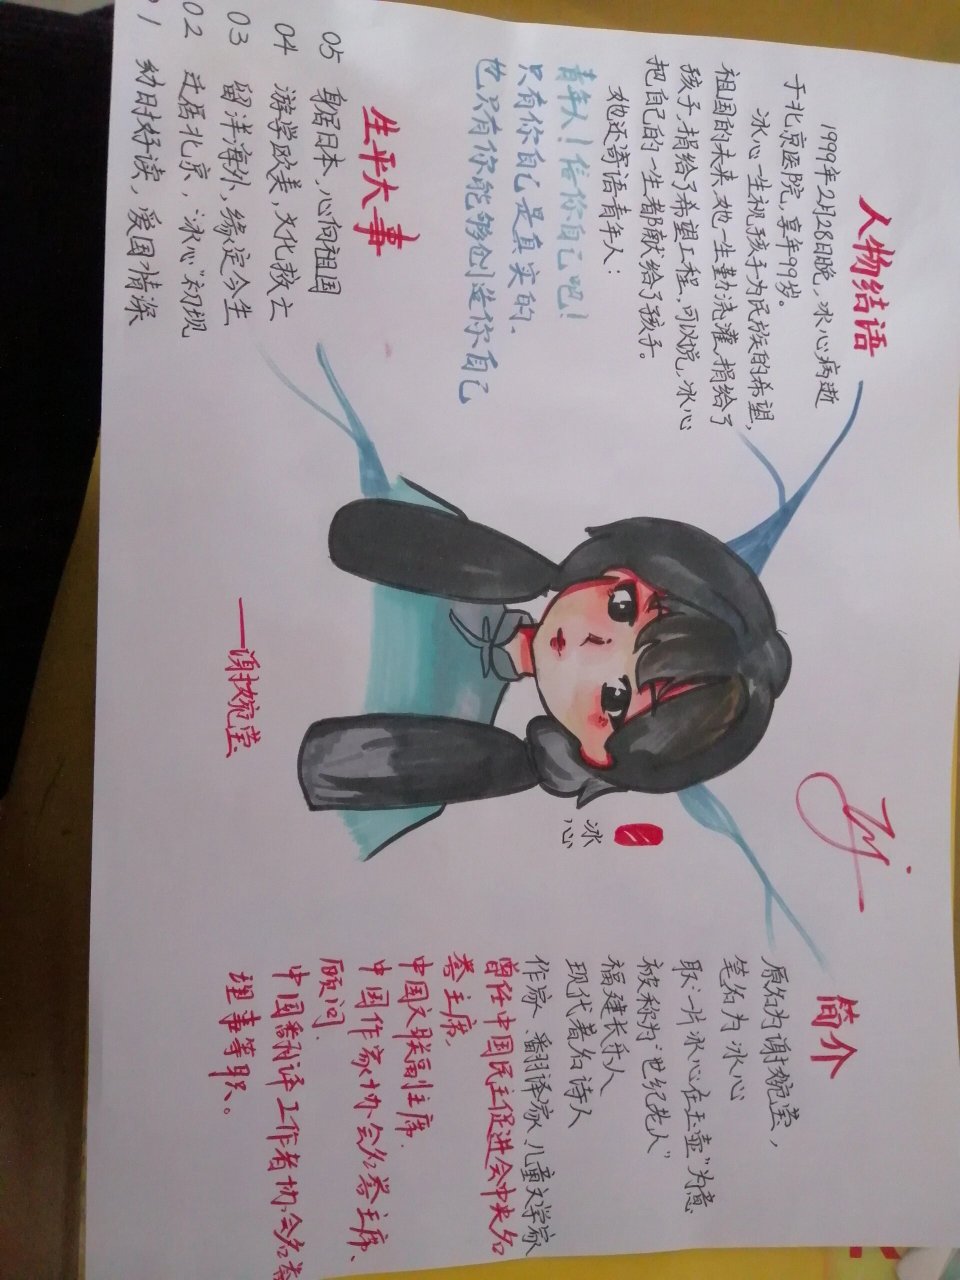 人物结语
1999年2月28日晚，冰心病逝
于北京医院，享年99岁。
冰心一生视孩子为民族的希望，
祖国的未来，她一生勤浇灌，捐给了
孩子，捐给了希望工程，可以说，冰心
把自己的一生都献给了孩子。
她还寄语青年人：
青年人！信你自己吧！
只有你自己是真实的、
也只有你能够创造你自己
生平大事
05 躯据日本，心向祖国
04 游学欧美，文化救亡
03 留洋海外，缘定今生
02 迁居北京，“冰心”初现
01 幼时好读，爱国情深
——谢婉莹
冰心
简介
原名为谢婉莹，
笔名为冰心
取：“一片冰心在玉壶”为意
被称为“世纪老人”
福建长乐人
现代著名诗人
作家、翻译家、儿童文学家
曾任中国民主促进会中央名
誉主席，
中国文联副主席.
中国作家协会名誉主席、
顾问.
中国翻译工作者协会名誉
理事等职。